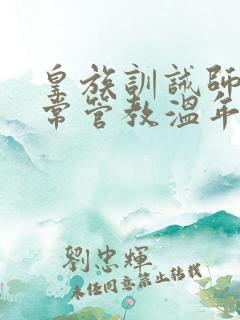 皇族訓誡師
常管教溫年
劉忠輝
未經同意禁止轉載